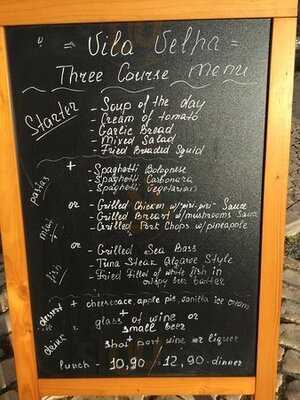 = Vila Velha =
Three Course Menu
Starter
- Soup of the day
- Cream of tomato
- Garlic Bread
- Mixed Salad
- Fried Breaded Squid
+
pastas
- Spaghetti Bolognese
- Spaghetti Carbonara
- Spaghetti Vegetarian
or
- Grilled Chicken w/piri-piri Sauce
- Grilled Breast w/mushrooms Sauce
- Grilled Pork Chops w/pineapple
or
fish
- Grilled Sea Bass
- Tuna Steak Algarve Style
- Fried Fillet of white fish in
crispy beer batter
+
desert
cheesecake, apple pie, vanilla ice cream
+
glass of wine or
small beer
+
shot port wine or liquer
lunch - 10,90 / 12,90 - dinner